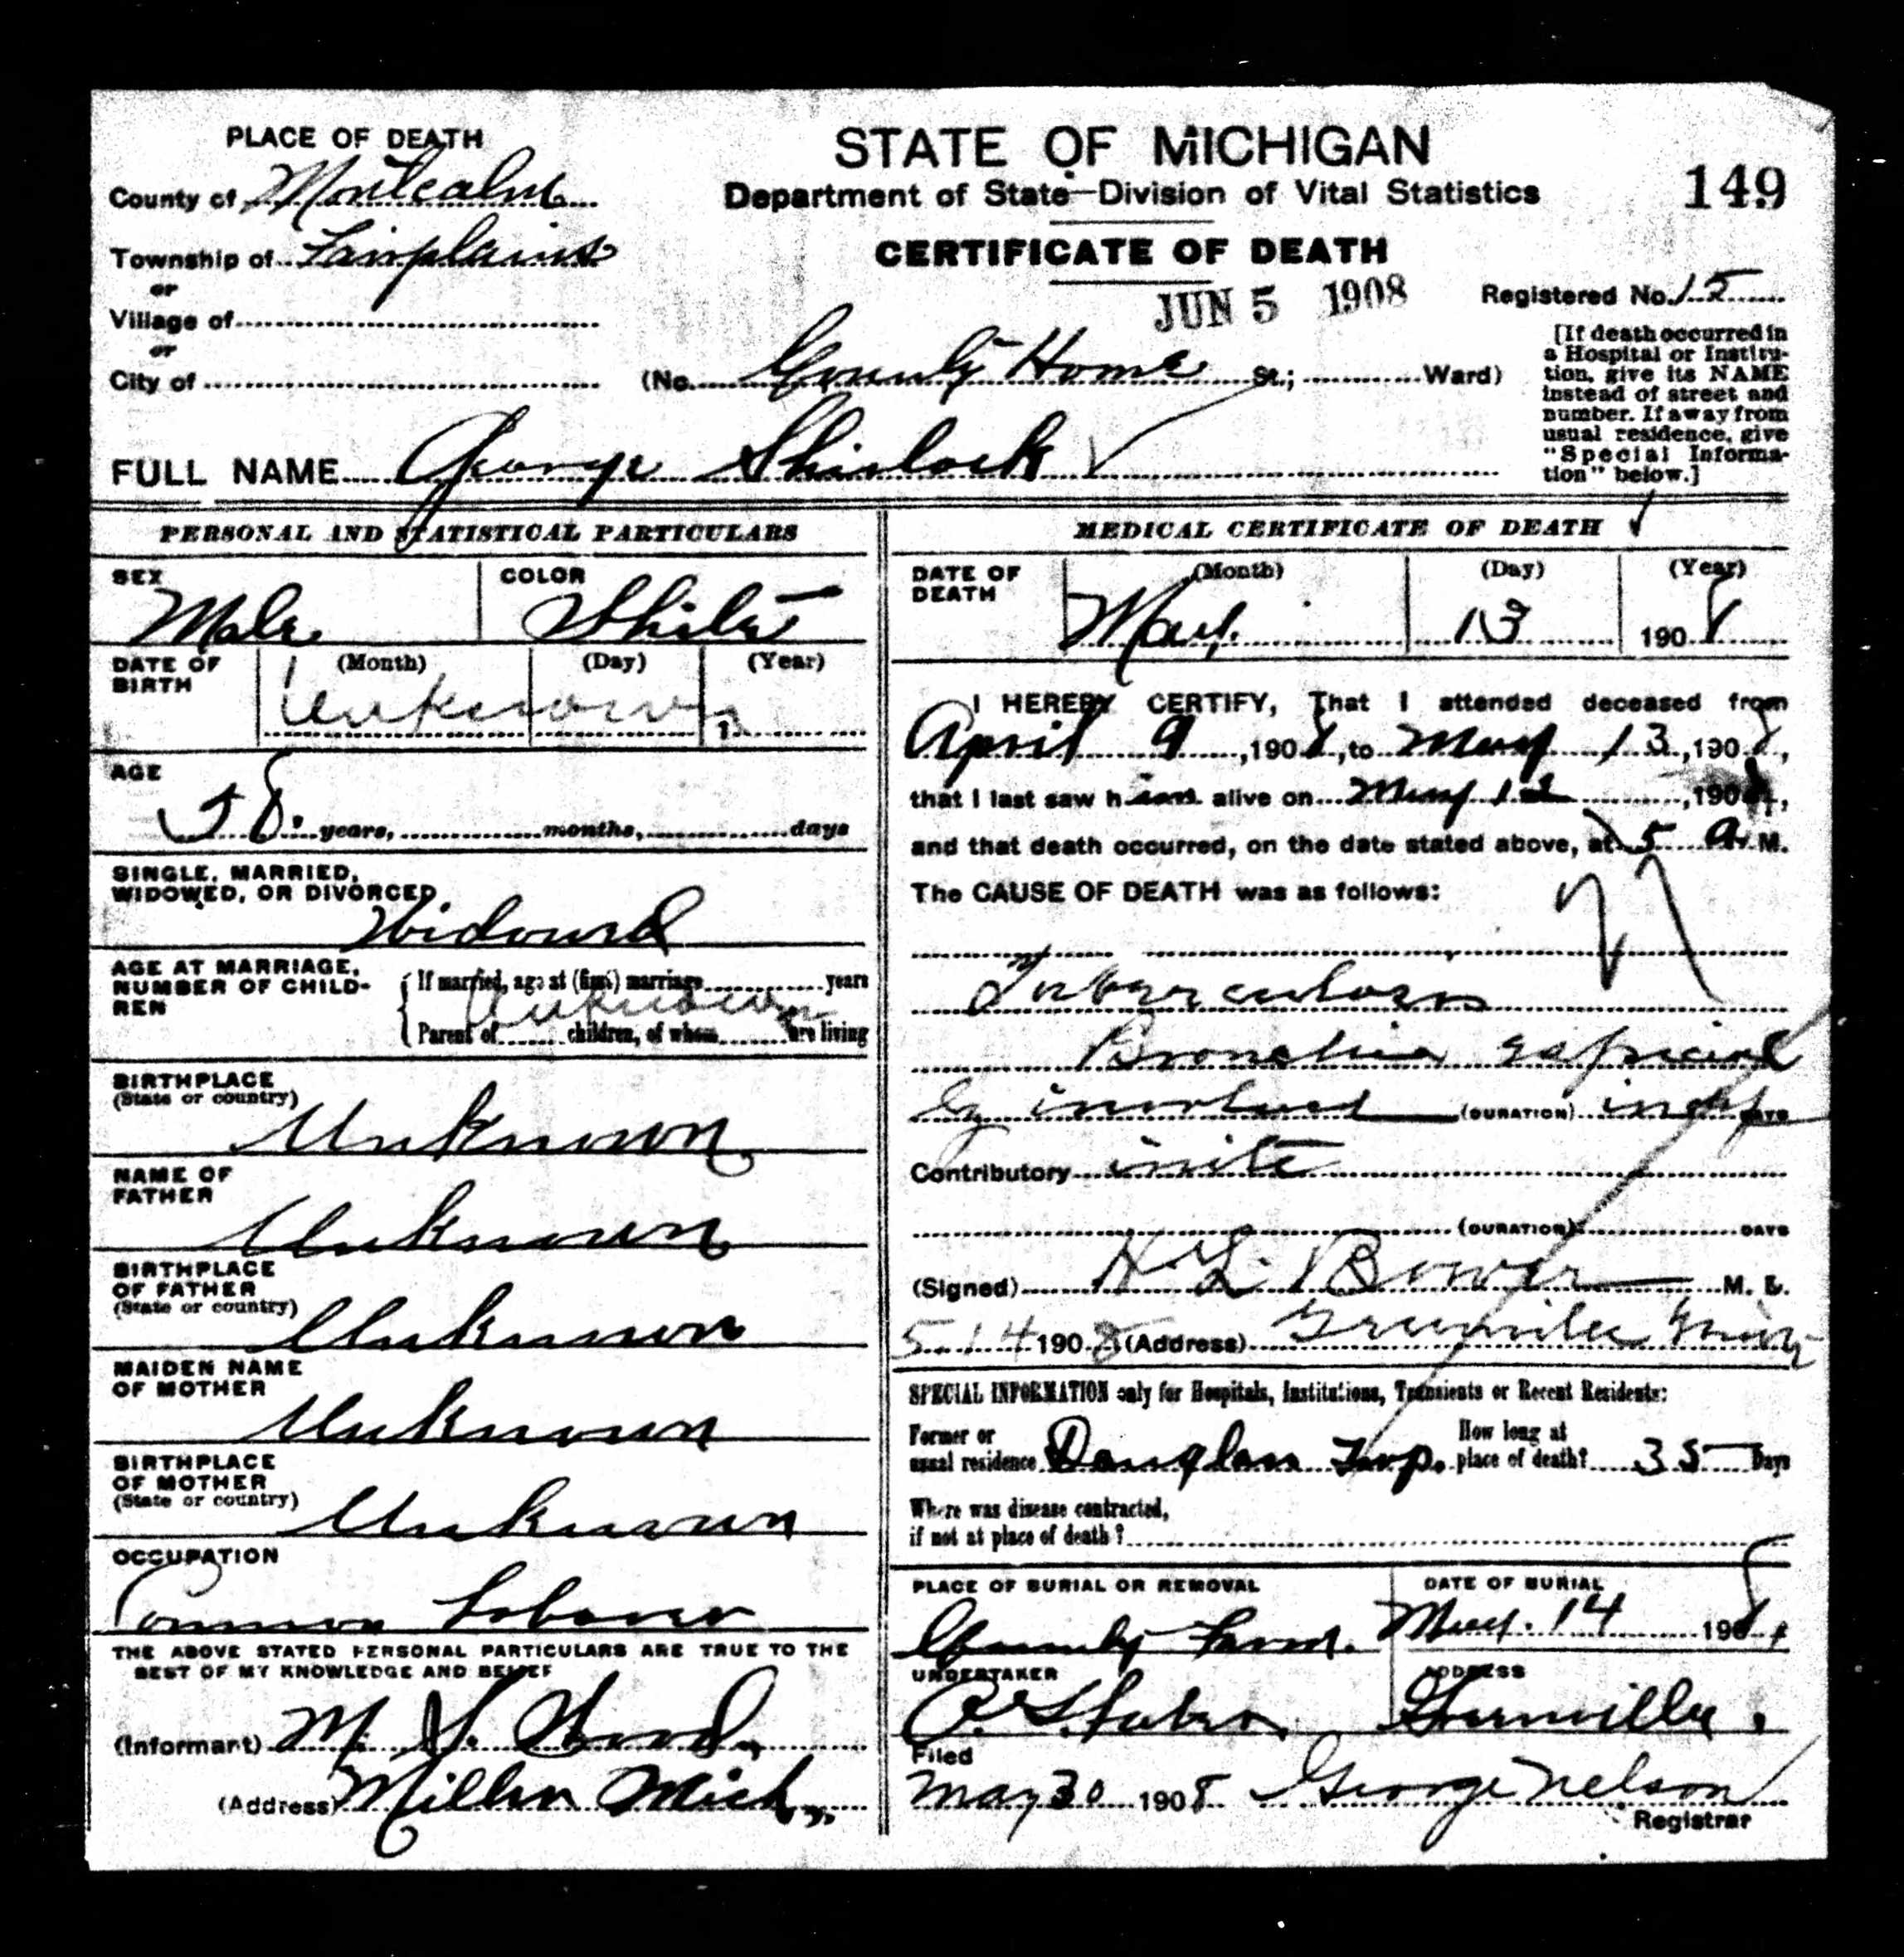 PLACE OF DEATH
County of Montcalm
Township of Fairplains
or
Village of
or
City of
STATE OF MICHIGAN
Department of State—Division of Vital Statistics
CERTIFICATE OF DEATH
149
JUN 5 1908
Registered No. 15
(No. County Home St.; Ward)
[If death occurred in
a Hospital or Institu-
tion, give its NAME
instead of street and
number. If away from
usual residence, give
"Special Informa-
tion" below.]
FULL NAME George
PERSONAL AND STATISTICAL PARTICULARS
SEX
Male
COLOR
White
DATE OF
BIRTH
(Month) (Day) (Year)
Unknown 1
AGE
58 years, months, days
SINGLE, MARRIED,
WIDOWED, OR DIVORCED
Widowed
AGE AT MARRIAGE,
NUMBER OF CHILD-
REN
If married, age at (first) marriage years
Unknown
Parent of children, of whom are living
BIRTHPLACE
(State or country)
Unknown
NAME OF
FATHER
Unknown
BIRTHPLACE
OF FATHER
(State or country)
Unknown
MAIDEN NAME
OF MOTHER
Unknown
BIRTHPLACE
OF MOTHER
(State or country)
Unknown
OCCUPATION
Common Laborer
THE ABOVE STATED PERSONAL PARTICULARS ARE TRUE TO THE
BEST OF MY KNOWLEDGE AND BELIEF
(Informant) M.
(Address) Mich.
MEDICAL CERTIFICATE OF DEATH
DATE OF
DEATH
(Month) (Day) (Year)
May 13 1908
I HEREBY CERTIFY, That I attended deceased from
April 9, 1908, to May 13, 1908,
that I last saw him alive on May 12, 1908,
and that death occurred, on the date stated above, at 5 a. M.
The CAUSE OF DEATH was as follows:
Tuberculosis
Bronchia especial
ly involved (DURATION) indef DAYS
Contributory inite
(DURATION) DAYS
(Signed) H L Bower M. D.
5-14 1908 (Address) Greenville Mich
SPECIAL INFORMATION only for Hospitals, Institutions, Transients or Recent Residents:
Former or
usual residence Douglass Twp.
How long at
place of death? 35 Days
Where was disease contracted,
if not at place of death?
PLACE OF BURIAL OR REMOVAL
County Farm.
DATE OF BURIAL
May. 14 1908
UNDERTAKER
ADDRESS
Greenville.
Filed
May 30 1908 George Nelson
Registrar